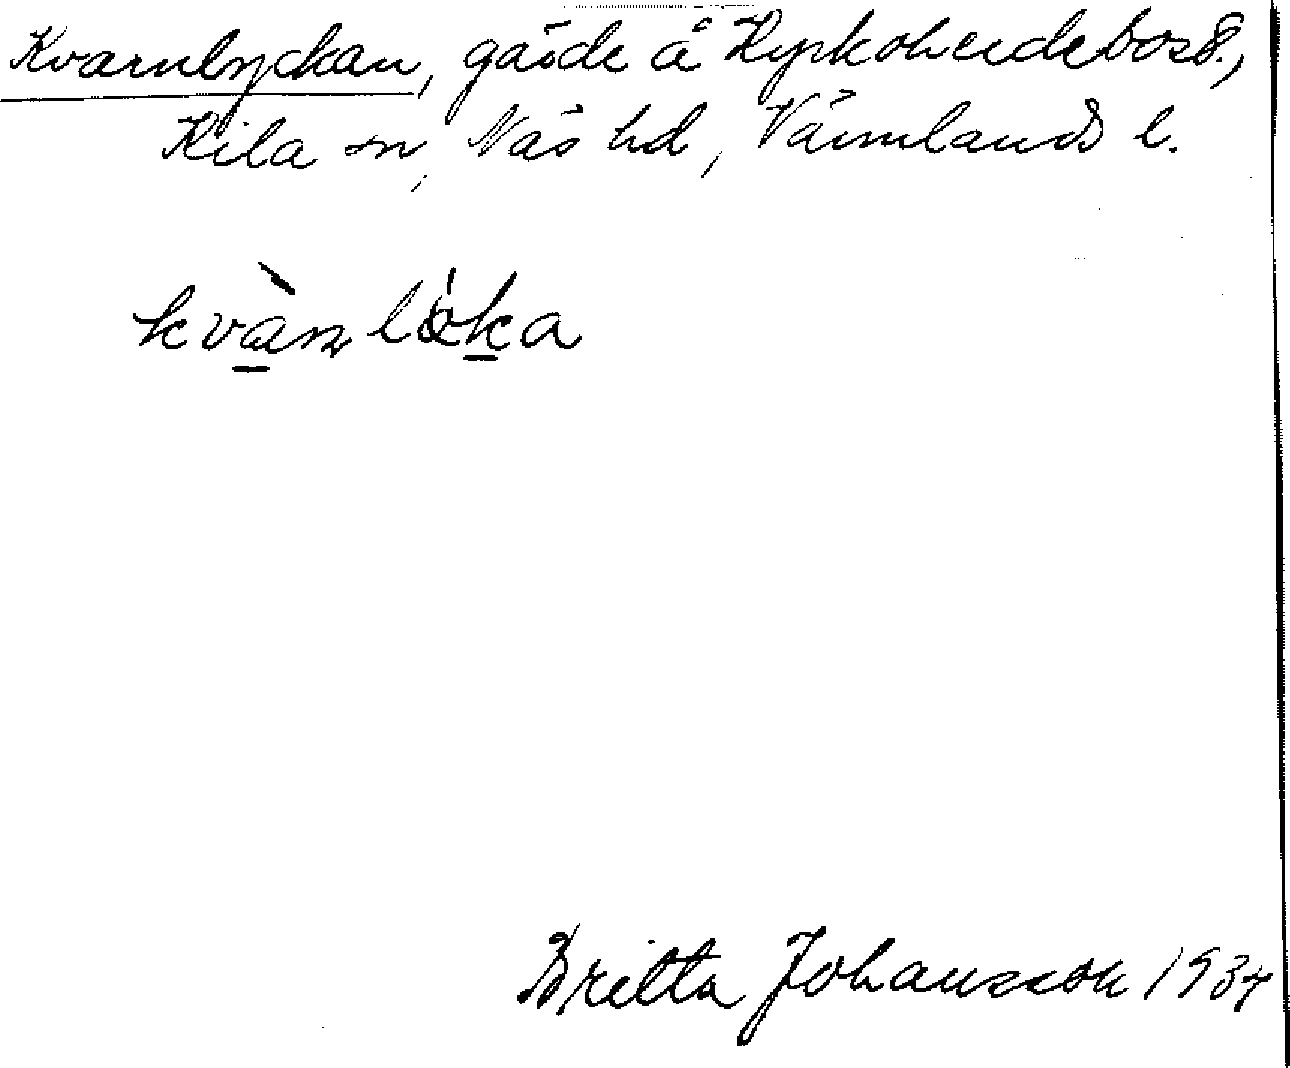 Kvarnlyckan, gärde å Kyrkoherdebost.,
Kila sn, Näs hd, Värmlands l.
kvànlø̀ka
Britta Johansson 1934